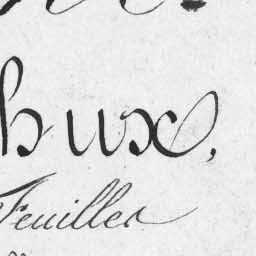 hux,
Feuilles